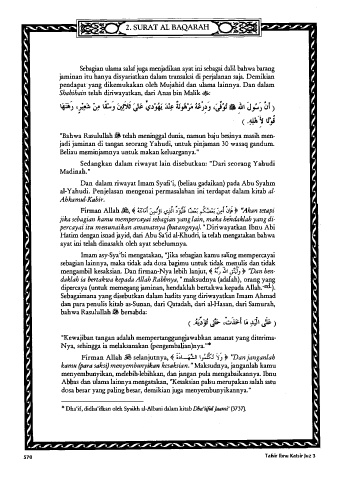 2. SURAT AL BAQARAH
Sebagian ulama salaf juga menjadikan ayat ini sebagai dalil bahwa barang
jaminan itu hanya disyariatkan dalam transaksi di perjalanan saja. Demikian
pendapat yang dikemukakan oleh Mujahid dan ulama lainnya. Dan dalam
Shahihain telah diriwayatkan, dari Anas bin Malik ؓ:
( أَنَّ رَسُولَ اللهِ ﷺ تُوُفِّيَ، وَدِرْعُهُ مَرْهُونَةٌ عِنْدَ يَهُودِيٍّ عَلَى ثَلَاثِينَ وَسْقًا مِنْ شَعِيرٍ، رَهَنَهَا
قُوتًا لِأَهْلِهِ. )
"Bahwa Rasulullah ﷺ telah meninggal dunia, namun baju besinya masih men-
jadi jaminan di tangan seorang Yahudi, untuk pinjaman 30 wasaq gandum.
Beliau meminjamnya untuk makan keluarganya."
Sedangkan dalam riwayat lain disebutkan: "Dari seorang Yahudi
Madinah."
Dan dalam riwayat Imam Syafi'i, (beliau gadaikan) pada Abu Syahm
al-Yahudi. Penjelasan mengenai permasalahan ini terdapat dalam kitab al-
Ahkamul-Kabir.
Firman Allah ﷻ, ﴿ فَإِنْ أَمِنَ بَعْضُكُم بَعْضًا فَلْيُؤَدِّ الَّذِي اؤْتُمِنَ أَمَانَتَهُ ﴾ "Akan tetapi
jika sebagian kamu mempercayai sebagian yang lain, maka hendaklah yang di-
percayai itu menunaikan amanatnya (hutangnya)." Diriwayatkan Ibnu Abi
Hatim dengan isnad jayid, dari Abu Sa'id al-Khudri, ia telah mengatakan bahwa
ayat ini telah dinasakh oleh ayat sebelumnya.
Imam asy-Sya'bi mengatakan, "Jika sebagian kamu saling mempercayai
sebagian lainnya, maka tidak ada dosa bagimu untuk tidak menulis dan tidak
mengambil kesaksian. Dan firman-Nya lebih lanjut, ﴿ وَلْيَتَّقِ اللَّهَ رَبَّهُ ﴾ "Dan hen-
daklah ia bertakwa kepada Allah Rabbnya," maksudnya (adalah), orang yang
dipercaya (untuk memegang jaminan, hendaklah bertakwa kepada Allah.
Sebagaimana yang disebutkan dalam hadits yang diriwayatkan Imam Ahmad
dan para penulis kitab as-Sunan, dari Qatadah, dari al-Hasan, dari Samurah,
bahwa Rasulullah ﷺ bersabda:
( عَلَى الْيَدِ مَا أَخَذَتْ، حَتَّى تُؤَدِّيَهُ. )
"Kewajiban tangan adalah mempertanggungjawabkan amanat yang diterima-
Nya, sehingga ia melaksanakan (pengembalian)nya."*
Firman Allah ﷻ selanjutnya, ﴿ وَلَا تَكْتُمُوا الشَّهَادَةَ ﴾ "Dan janganlah
kamu (para saksi) menyembunyikan kesaksian." Maksudnya, janganlah kamu
menyembunyikan, melebih-lebihkan, dan jangan pula mengabaikannya. Ibnu
Abbas dan ulama lainnya mengatakan, "Kesaksian palsu merupakan salah satu
dosa besar yang paling besar, demikian juga menyembunyikannya."
* Dha'if, didha'ifkan oleh Syaikh al-Albani dalam kitab Dha'iiful Jaami' (3737).
570
Tafsir Ibnu Katsir Juz 3